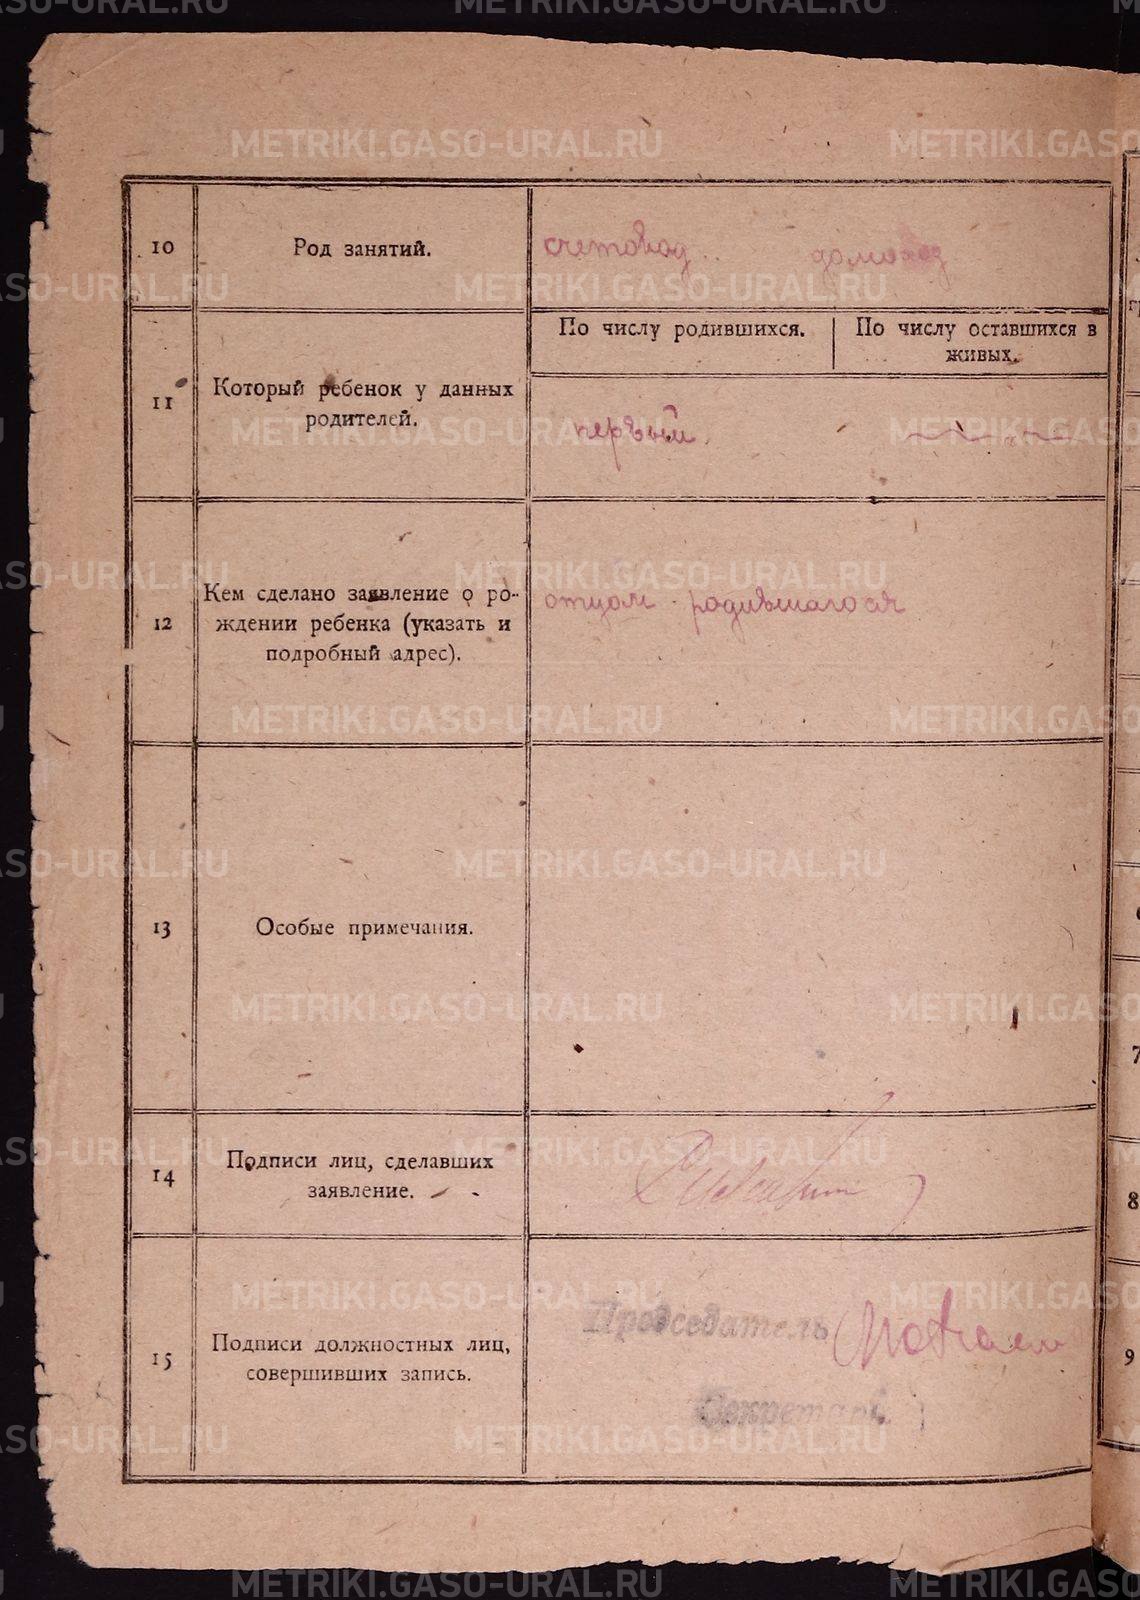 10
Род занятий.
счетовод
11
Который ребенок у данных
родителей.
По числу родившихся.
По числу оставшихся в
живых.
первый
12
Кем сделано заявление о ро-
ждении ребенка (указать и
подробный адрес).
отцом родившагося
13
Особые примечания.
14
Подписи лиц, сделавших
заявление.
15
Подписи должностных лиц,
совершивших запись.
Председатель
Секретарь
7
8
9
METRIKI.GASO-URAL.RU